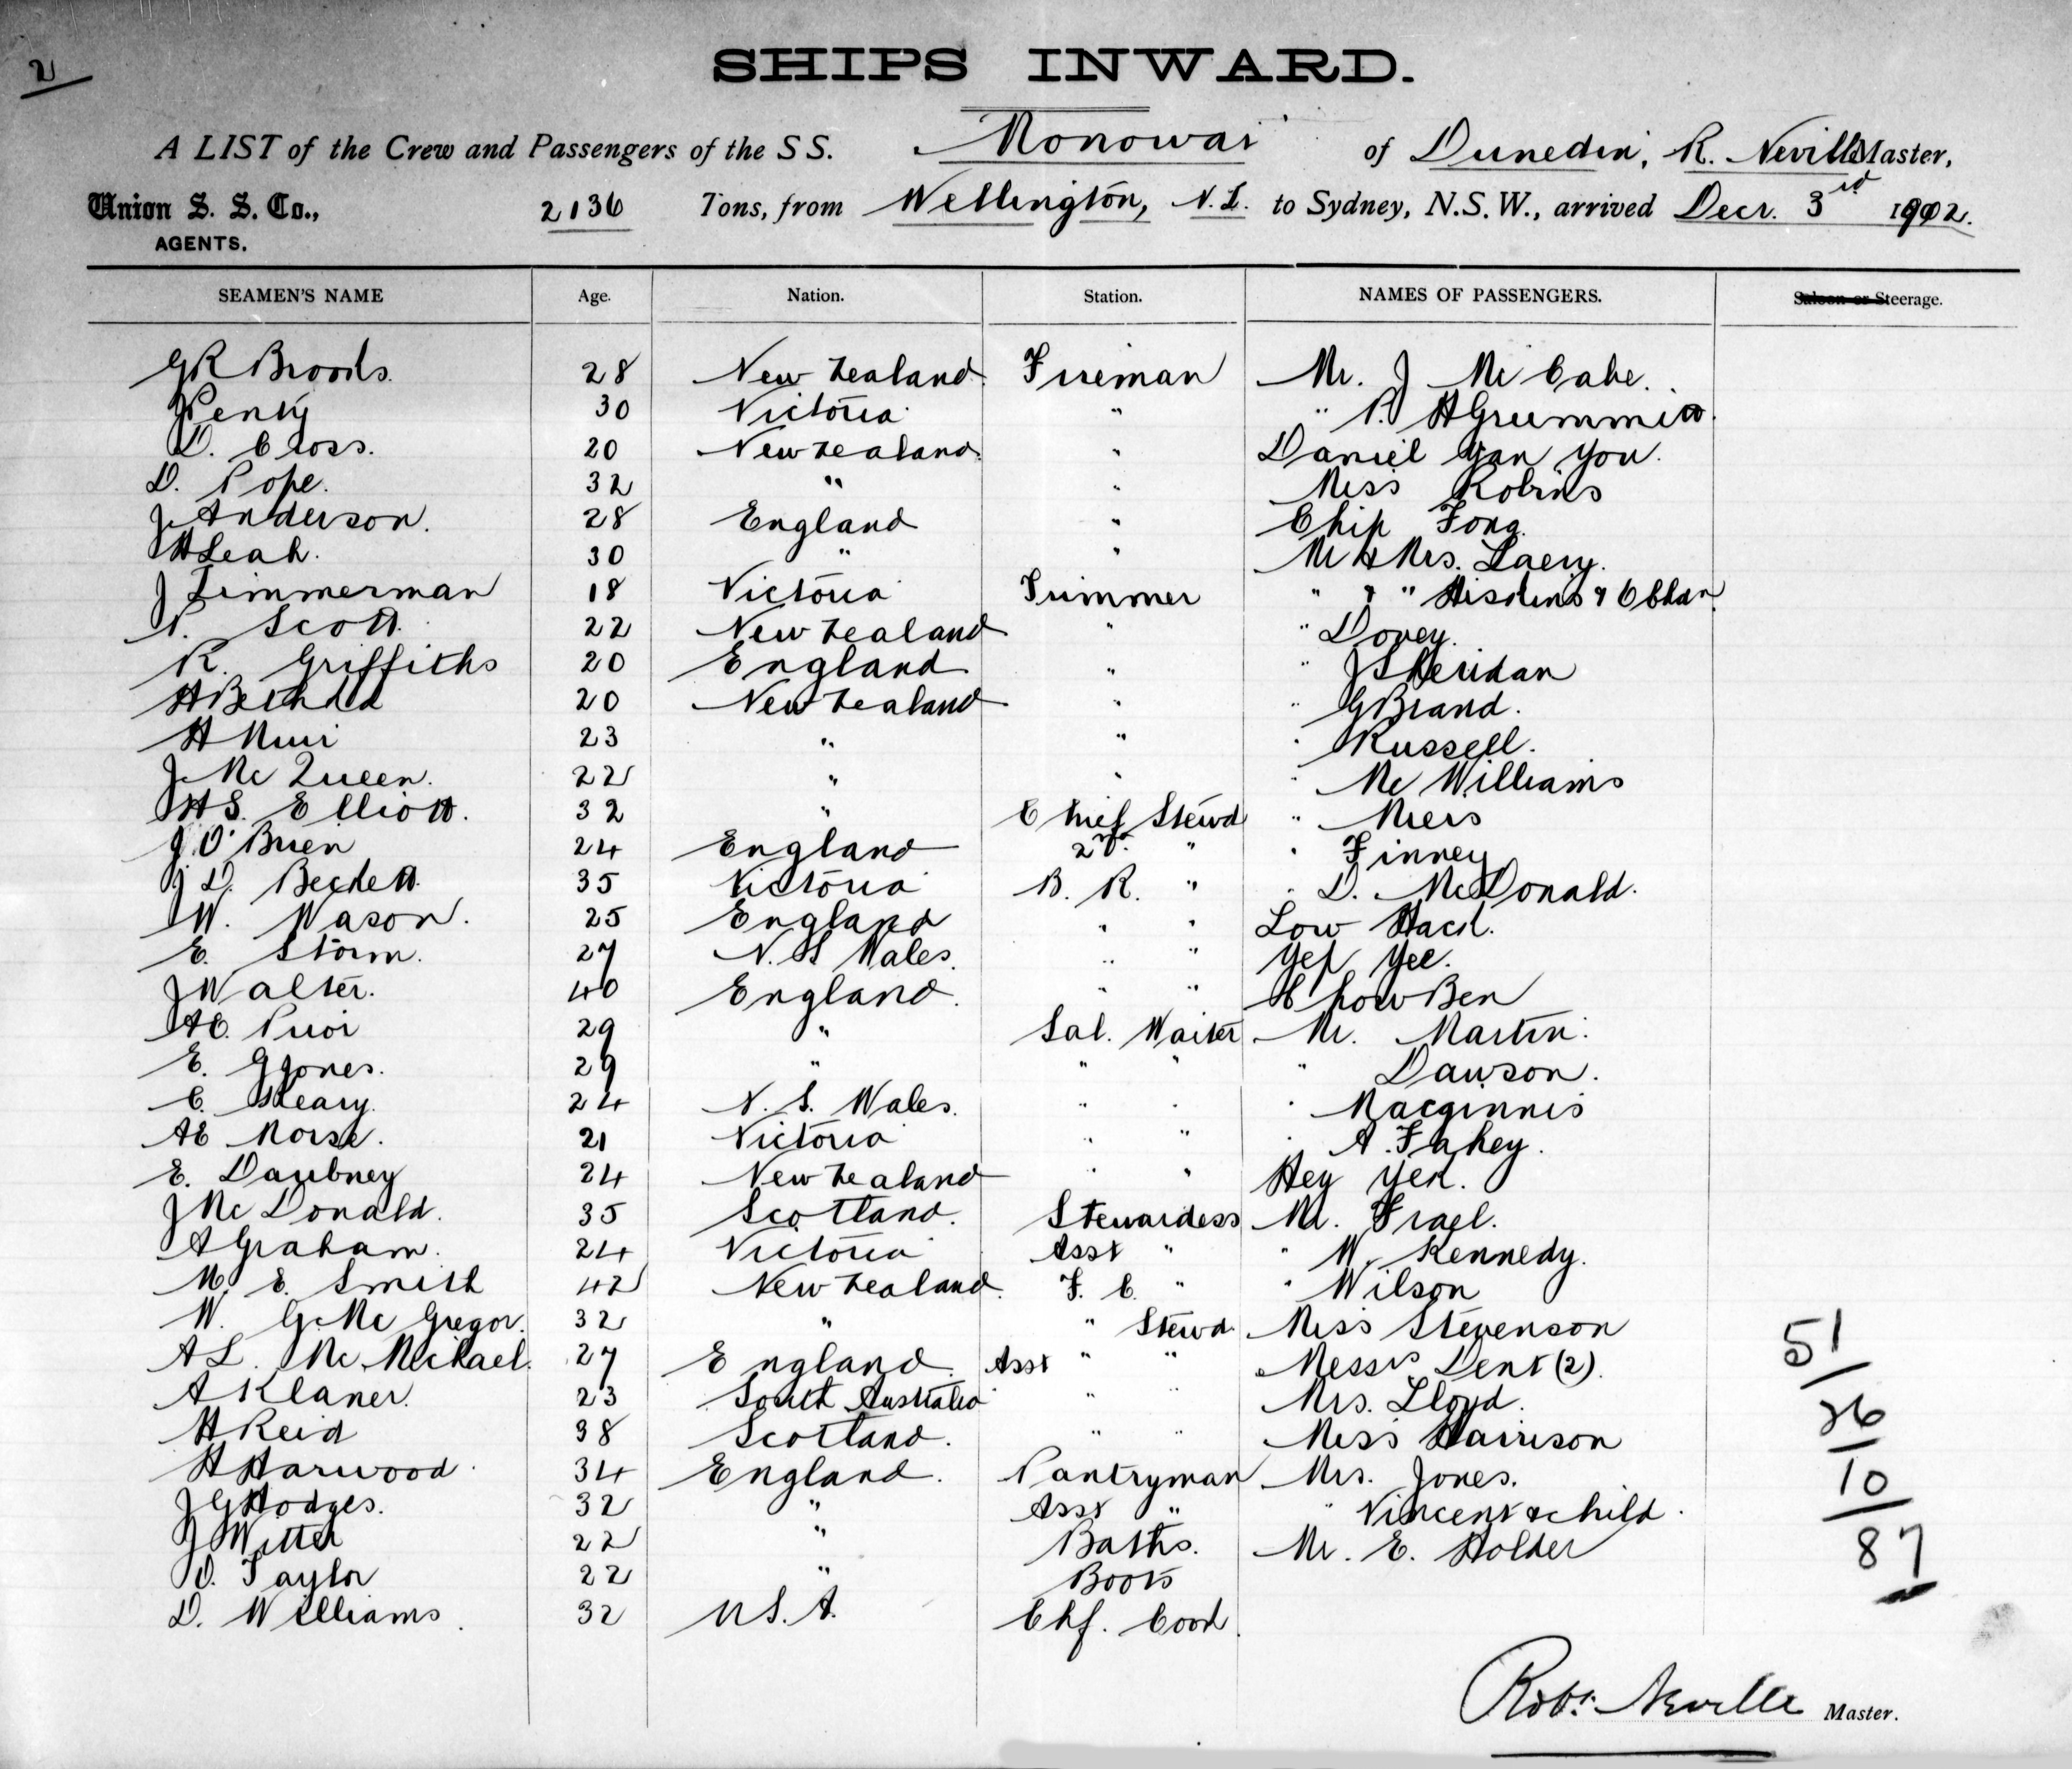 2
SHIPS INWARD.
A LIST of the Crew and Passengers of the S S. Monowai of Dunedin, R. Neville Master,
Union S. S. Co., 2136 Tons, from Wellington, N.Z. to Sydney, N.S.W., arrived Decr. 3rd 1902.
AGENTS.
SEAMEN'S NAME Age. Nation. Station. NAMES OF PASSENGERS. Saloon or Steerage.
GR Brooks. 28 New Zealand. Fireman Mr. J Mc Cabe.
J Penty 30 Victoria " " P. H Grummitt.
D. Cross. 20 New Zealand. " Daniel Yan You.
D. Pope. 32 " " Miss Robins
J. Anderson. 28 England " Chip Fong.
H Leah. 30 " " Mr & Mrs. Laery.
J Zimmerman 18 Victoria Trimmer " & " & Chldn
N. Scott. 22 New Zealand " " Dovey.
R. Griffiths 20 England " " J Sheridan
H 20 New Zealand " " G Brand.
H Muir 23 " " " Russell.
J. Mc Queen. 22 " " " Mc Williams
H S. Elliott. 32 " Chief Stewd " Miers
J. O'Brien 24 England 2nd. " " Finney
J D. Beckett. 35 Victoria B. R. " " D. McDonald.
W. Wason. 25 England " " Low Hack.
E. Storm. 27 N. S Wales. " " Yep Yee.
J Walter. 40 England. " " Chow Ben
A E. Prior 29 " Sal. Waiter Mr. Martin.
E. G Jones. 29 " " " " Dawson.
C. Skeary. 24 N. S. Wales. " " " Macginnis
A E Morse. 21 Victoria " " " A. Fahey.
E. Daubney 24 New Zealand " " Hey Yek.
J Mc Donald. 35 Scotland. Stewardess Mr. Frael.
A Graham. 24 Victoria Asst " " W. Kennedy.
M. E. Smith 42 New Zealand. F. C. " " Wilson
W. G. Mc Gregor. 32 " " Stewd. Miss Stevenson
A L. Mc Mikael. 27 England. Asst " " Messrs Dent (2).
A Klaner. 23 South Australia " " Mrs. Lloyd.
H Reid 38 Scotland. " " Miss Harrison
H Harwood. 34 England. Pantryman Mrs. Jones.
J G Hodges. 32 " Asst " " Vincent & child.
J Witter 22 " Baths. Mr. E. Holder
D. Taylor 22 " Boots
D. Williams. 32 U S. A. Chf. Cook.
51
26
10
87
Robt. Neville Master.